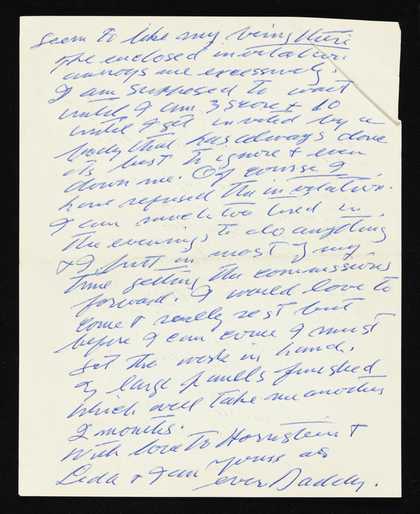 seem to like my being there
The enclosed invitation
annoys me excessively.
I am supposed to wait
until I am 3 score & 10
until I get invited by a
body that has always done
its best to ignore & even
down me. Of course I
have refused the invitation.
I am much too tired in
the evenings to do anything
& I put in most of my
time getting the commissions
forward. I would love to
come & really rest but
before I can come I must
get the work in hand.
of large panells finished
which will take me another
2 months.
With love to Hornstein &
Leda & I am yours as
ever Daddy.